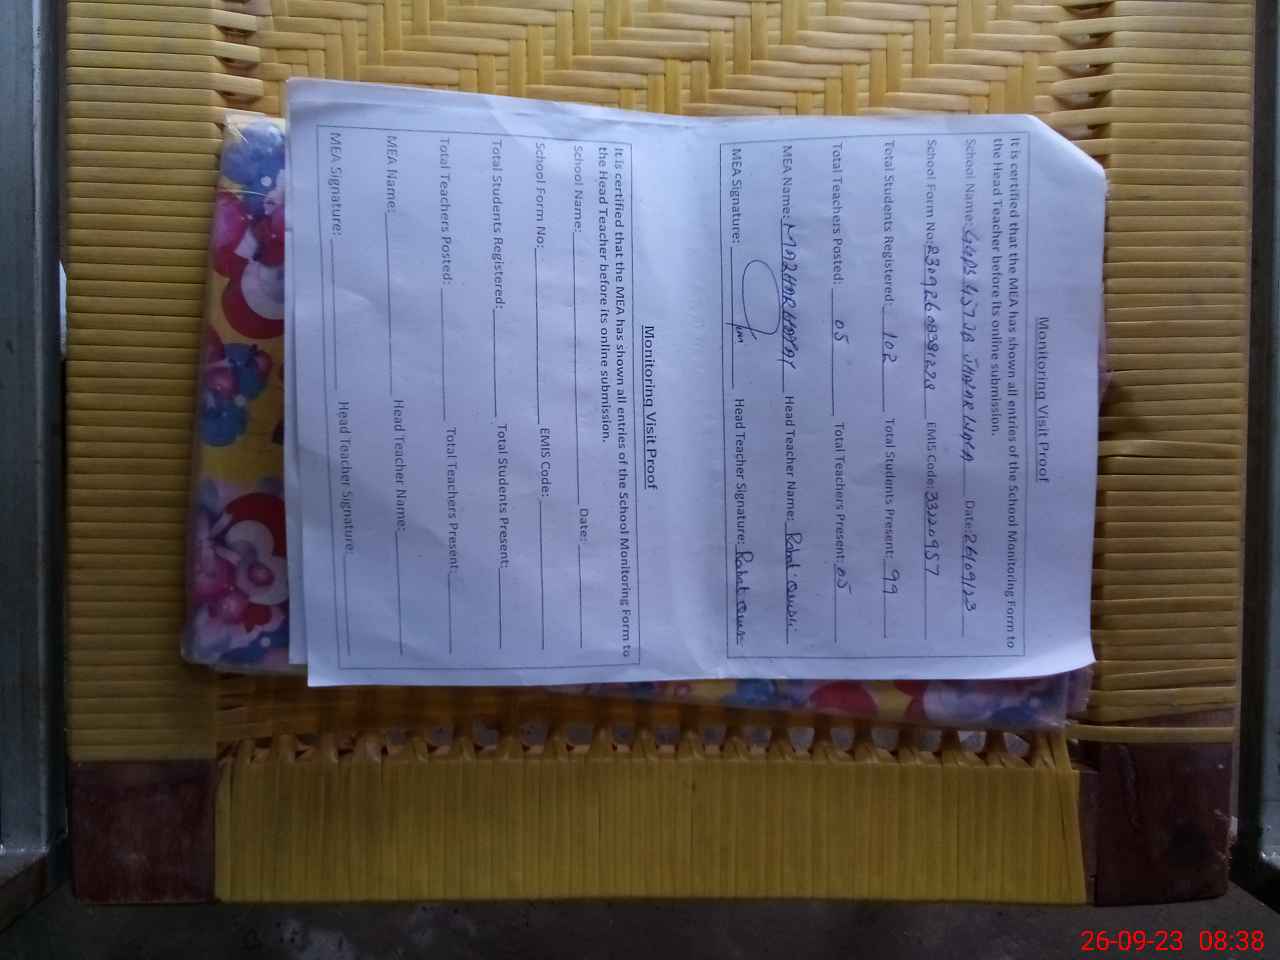 Monitoring Visit Proof
It is certified that the MEA has shown all entries of the School Monitoring Form to
the Head Teacher before its online submission.
School Name: GGPS 457 JB Date: 26/09/23
School Form No: R3092608381228 EMIS Code: 33220957
Total Students Registered: 102 Total Students Present: 99
Total Teachers Posted: 05 Total Teachers Present: 05
MEA Name: MAZHAR HAYAT Head Teacher Name: Rahat
MEA Signature: Head Teacher Signature: Rahat
Monitoring Visit Proof
It is certified that the MEA has shown all entries of the School Monitoring Form to
the Head Teacher before its online submission.
School Name: Date:
School Form No: EMIS Code:
Total Students Registered: Total Students Present:
Total Teachers Posted: Total Teachers Present:
MEA Name: Head Teacher Name:
MEA Signature: Head Teacher Signature:
26-09-23 08:38